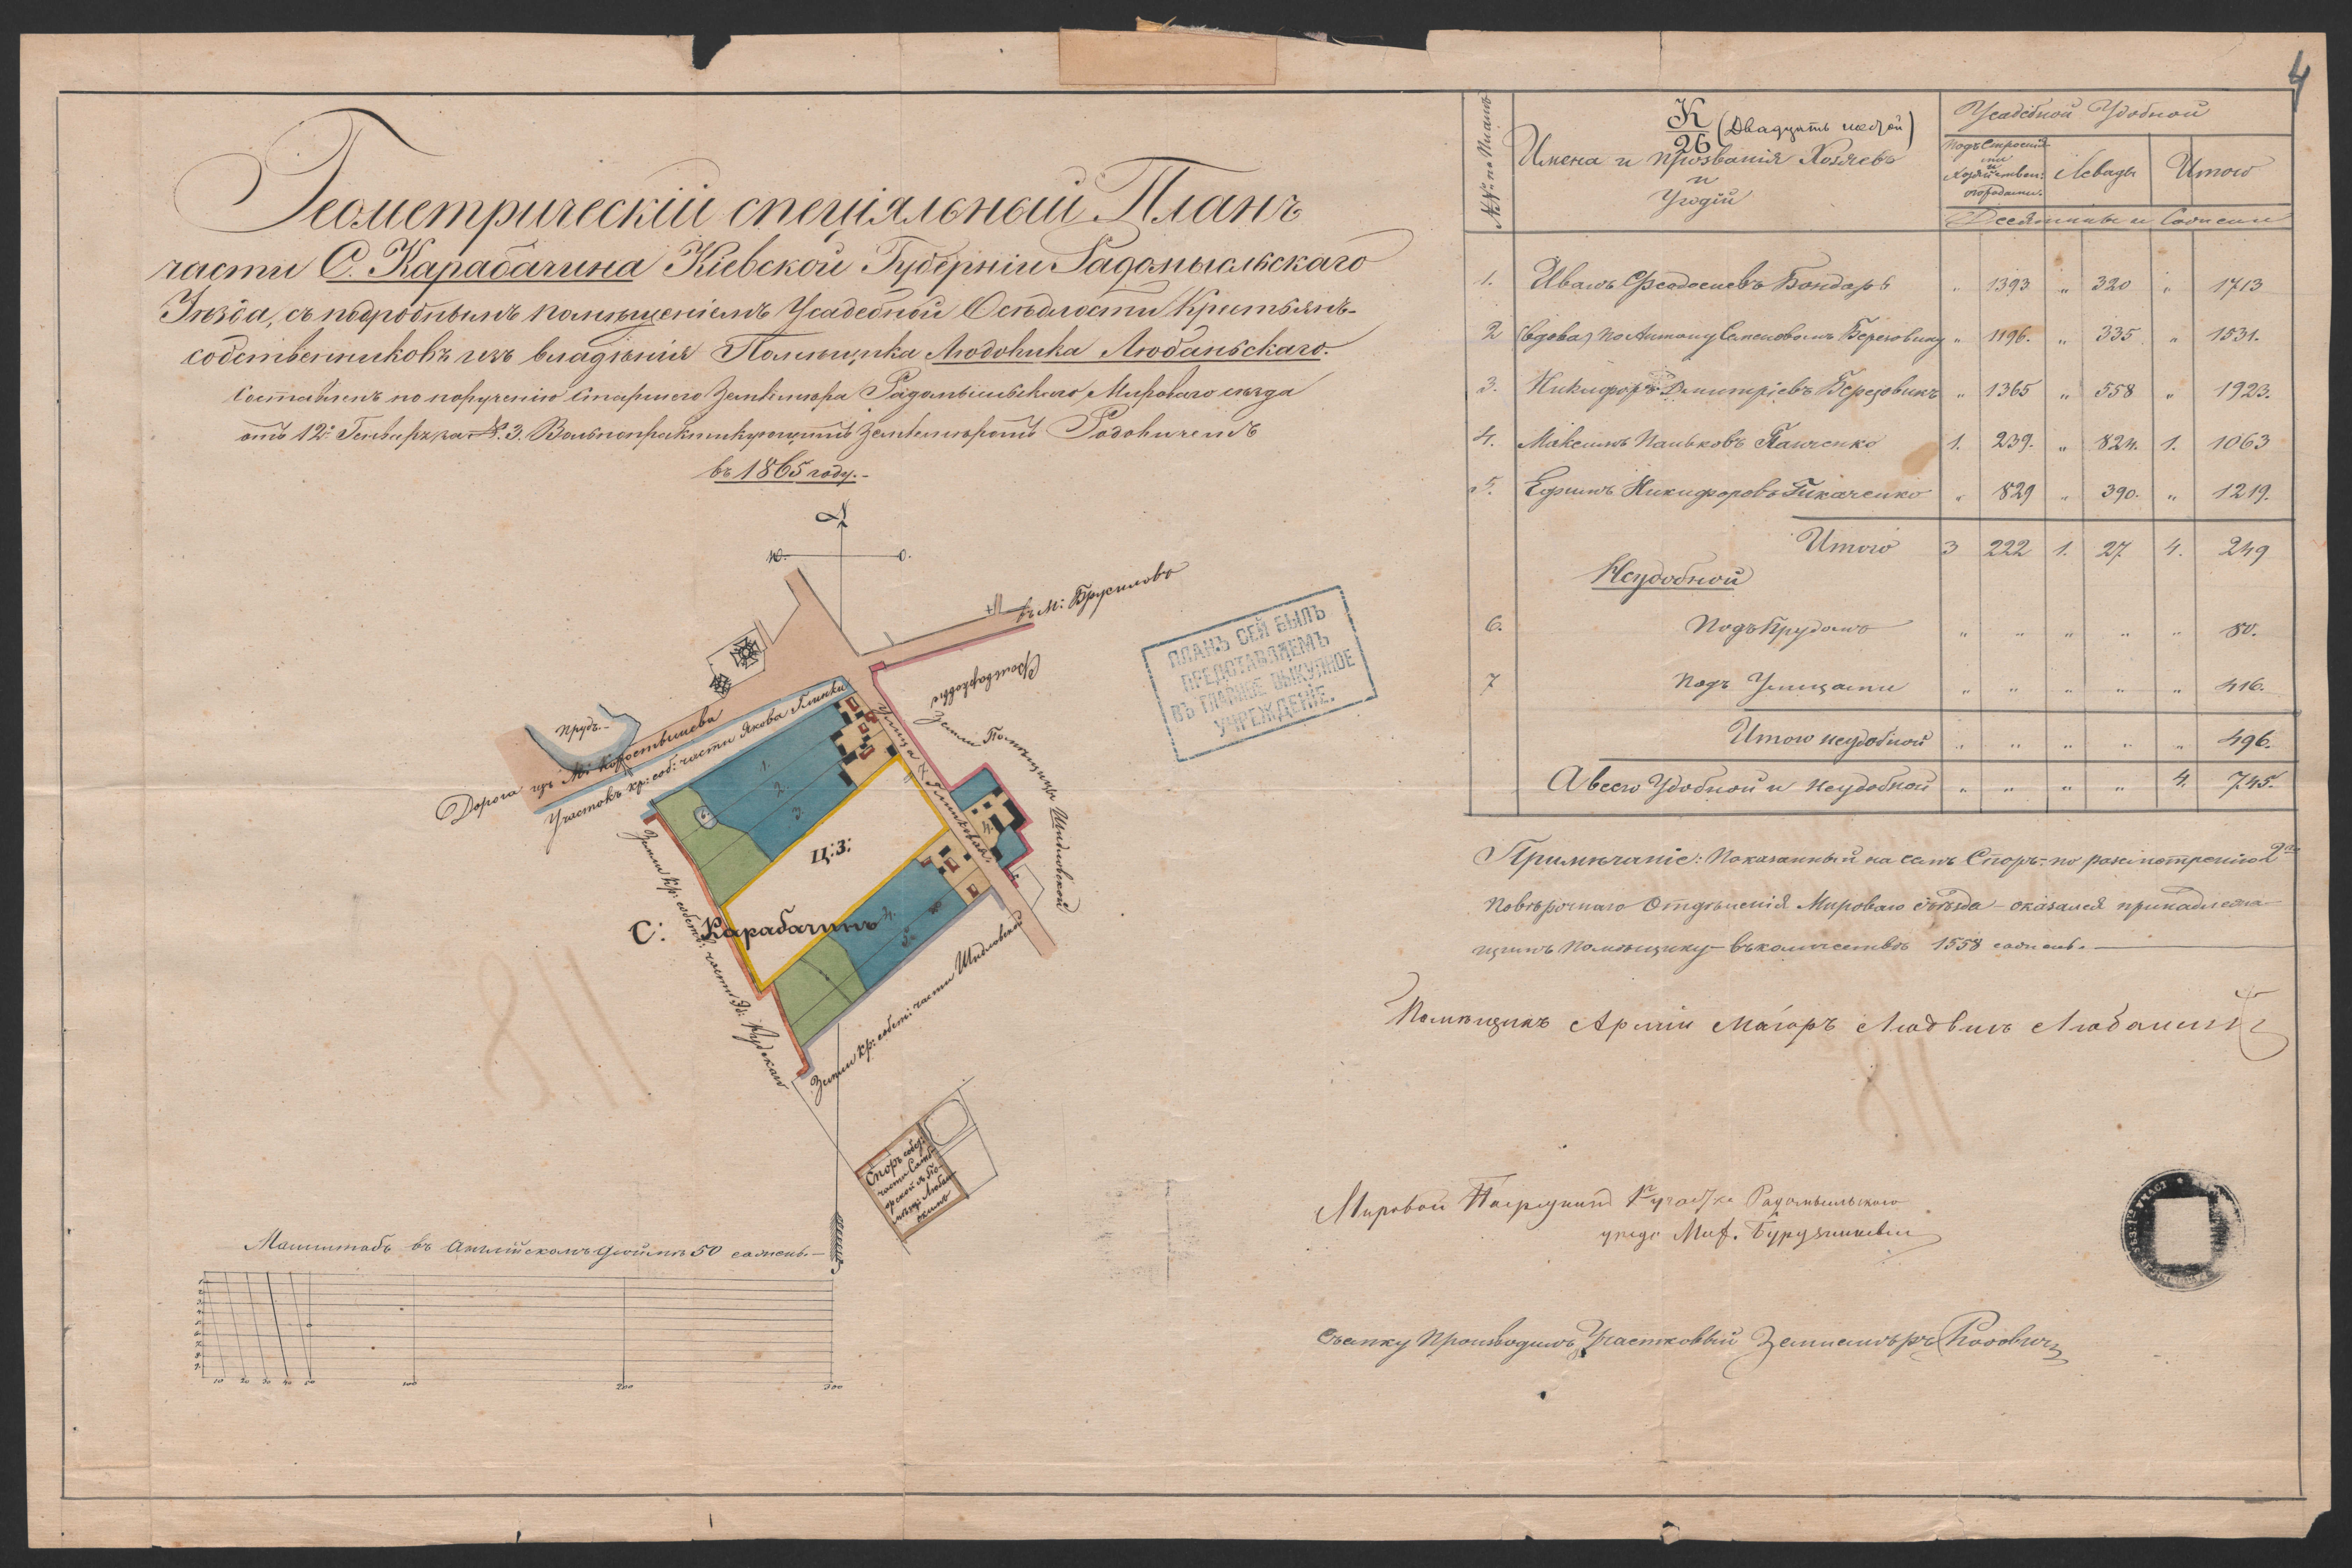 4
Геометрическій спеціяльный Планъ
части С. Карабачина Кіевской Губерніи Радомысльскаго
Уѣзда, съ подробнымъ помѣщеніемъ Усадебной Осѣдлости Крестьянъ-
собственниковъ изъ владѣнія Помѣщика Людовика Любаньскаго.
Составленъ по порученію Старшего Землемѣра Радомысльскаго Мироваго съезда
отъ 12: Генваря за №. 3. Вольнопрактикующимъ Землемѣромъ Родовичемъ
въ 1865 году.-
W.
O.
въ М: Брусиловъ
Фольварковые
Земли Помѣщицы Шидловской
Прудъ.-
Дорога изъ М: Коростышева
Участокъ кр: соб: части Якова Глинки
Улица 7.
1.
2.
3.
6.
Ц:З:
4.
С: Карабачинъ
4.
5.
Земли кр: собств: части Эд: Рудскаго
Земли кр: собств: части Шидловской
Споръ собст:
части
Масштабъ въ Англійскомъ дюймѣ 50 саженъ.-
10 20 30 40 50 100 200 300
ПЛАНЪ СЕЙ БЫЛЪ
ПРЕДСТАВЛЯЕМЪ
ВЪ ГЛАВНОЕ ВЫКУПНОЕ
УЧРЕЖДЕНІЕ.
№№ по Плану
К
26 (Двадцать шестой)
Имена и прозванія Хозяевъ
и
Угодій
Усадебной Удобной
Подъ Строені-
ями
и
Хозяйствен:
огородами.
Левады
Итого
Десятины и Сажени
1. Иванъ Феодосиевъ Бондарь " 1393 " 320 " 1713
2 (вдова) по Антону Семеновомъ Березовику " 1196. " 335 " 1531.
3. Никифоръ Дмитріевъ Березовикъ " 1365 " 558 " 1923.
4. Максимъ Паньковъ Панченко 1. 239. " 824. 1. 1063
5. Ефимъ Никифоровъ Ткаченко " 829 " 390. " 1219.
Итого 3 222 1. 27 4. 249
Неудобной
6. Подъ Прудомъ " " " " " 80.
7 Подъ Улицами " " " " " 416.
Итого неудобной " " " " " 496.
А всего Удобной и Неудобной " " " " 4. 745.
Примѣчаніе: Показанный на семъ Споръ:- по разсмотренію 2го
Повѣрочнаго Отдѣленія Мироваго съѣзда - оказался принадлежа-
щимъ Помѣщику - въ количествѣ 1558 саженъ.-
Помѣщикъ Арміи Маіоръ Людвикъ Любанскій
Мировой Посредникъ 1го участка Радомысльскаго
уезда
Съемку Производилъ Участковый Землемѣръ Родовичъ